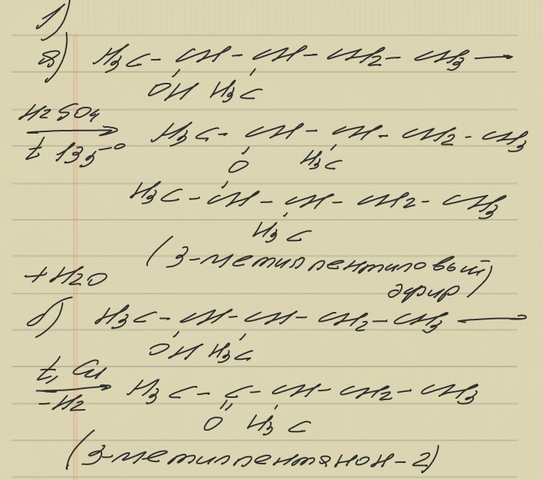 1)
а) H3C - CH - CH - CH2 - CH3 →
OH H3C
H2SO4
t 135° H3C - CH - CH - CH2 - CH3
O H3C
H3C - CH - CH - CH2 - CH3
H3C
(3-метилпентиловый
эфир)
+H2O
б) H3C - CH - CH - CH2 - CH3 →
OH H3C
t, Cu
-H2 H3C - C - CH - CH2 - CH3
O H3C
(3-метилпентанон-2)